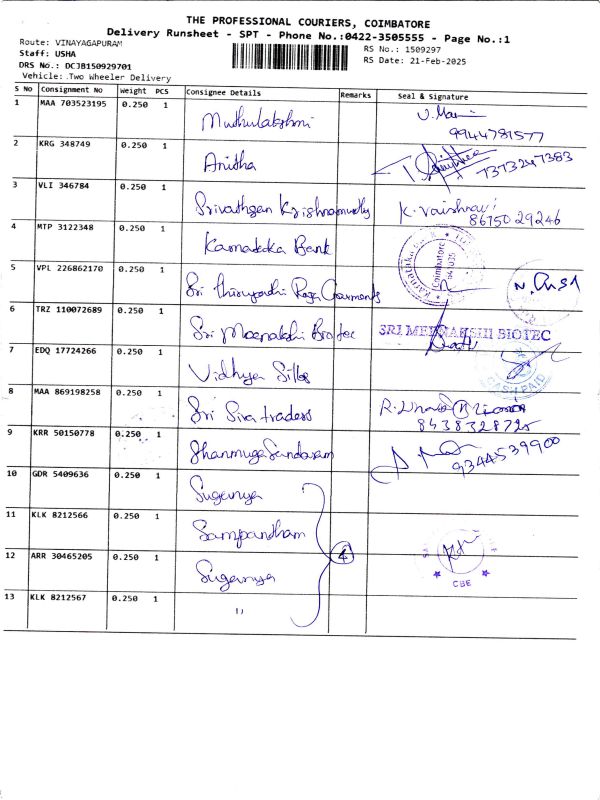 THE PROFESSIONAL COURIERS, COIMBATORE
Delivery Runsheet - SPT - Phone No.:0422-3505555 - Page No.:1
Route: VINAYAGAPURAM
Staff: USHA
DRS No.: DCJB150929701
Vehicle: Two Wheeler Delivery
RS No.: 1509297
RS Date: 21-Feb-2025
S No Consignment No Weight PCS Consignee Details Remarks Seal & Signature
1 MAA 703523195 0.250 1 Muthulakshmi
9944781577
2 KRG 348749 0.250 1 Anitha
7373247383
3 VLI 346784 0.250 1 Srivathsan Krishnamurthy K. Vaishnavi
8675029246
4 MTP 3122348 0.250 1 Karnataka Bank Coimbatore
5 VPL 226862170 0.250 1 Sri Garments
6 TRZ 110072689 0.250 1 Sri Meenakshi Biotec SRI MEENAKSHI BIOTEC
7 EDQ 17724266 0.250 1 Vidhya Silks CASH PAID
8 MAA 869198258 0.250 1 Sri Siva traders
8438328725
9 KRR 50150778 0.250 1 Shanmuga Sundaram
9344539900
10 GDR 5409636 0.250 1 Suganya
11 KLK 8212566 0.250 1 Sampandham
12 ARR 30465205 0.250 1 Suganya 4 CBE
13 KLK 8212567 0.250 1 "